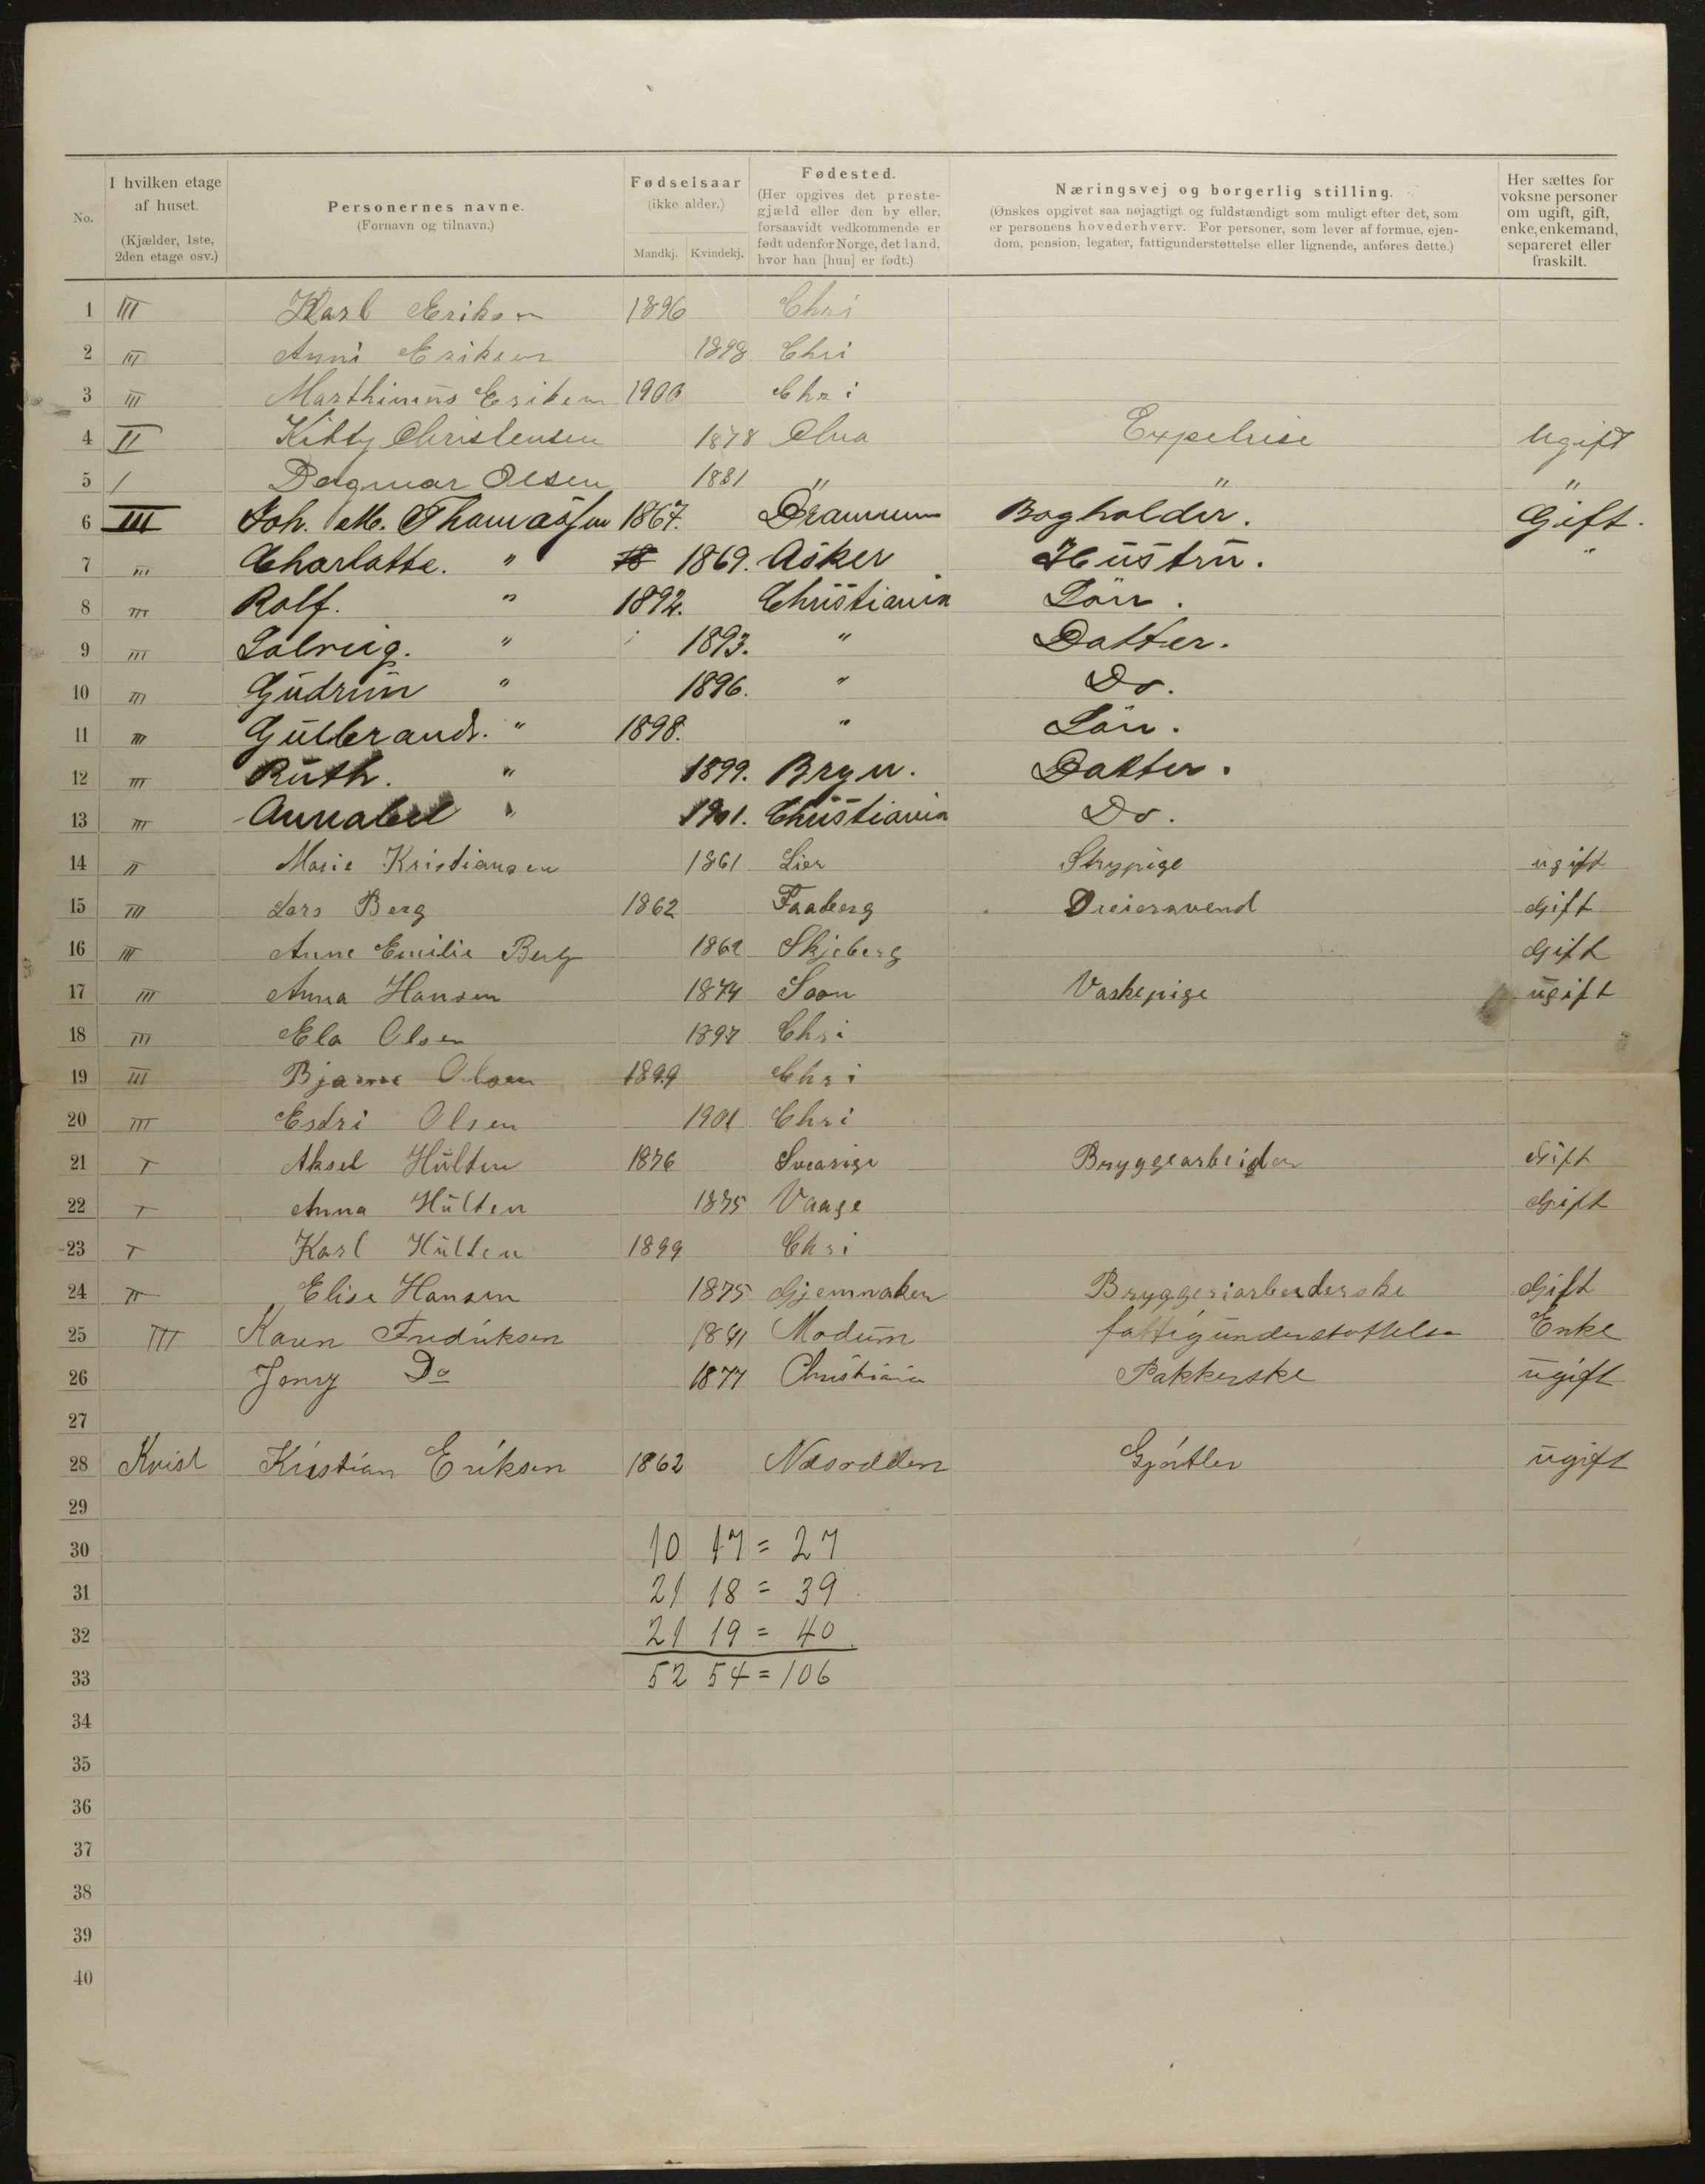 No. I hvilken etage af huset. (Kjælder, 1ste, 2den etage osv.) Personernes navne. (Fornavn og tilnavn.) Fødselsaar (ikke alder.) Mandkj. Kvindekj. Fødested. (Her opgives det prestegjæld eller den by eller, forsaavidt vedkommende er født udenfor Norge, det land, hvor han [hun] er født.) Næringsvej og borgerlig stilling. (Ønskes opgivet saa nøjagtigt og fuldstændigt som muligt efter det, som er personens hovederhverv. For personer, som lever af formue, ejendom, pension, legater, fattigunderstøttelse eller lignende, anføres dette.) Her sættes for voksne personer om ugift, gift, enke, enkemand, separeret eller fraskilt.
1 III Karl Eriksen 1896 Chri
2 III Anni Eriksen 1898 Chri
3 III Marthinius Eriksen 1900 Chri
4 II Kitty Christensen 1878 Expetrise Ugift
5 / Dagmar Olsen 1881 " " "
6 III Joh. M. Thomassen 1867. Drammen Bogholder. Gift.
7 III Charlotte. " 18 1869. Asker Hustru. "
8 III Rolf. " 1892. Christiania Sön.
9 III Solveig. " 1893. " Datter.
10 III Gudrun " 1896. " Do.
11 III Gulbrand. " 1898. " Sön.
12 III Ruth. " 1899. Bryn. Datter.
13 III Annabel " 1901. Christiania Do.
14 II Marie Kristiansen 1861 Lier Strypige ugift
15 III Lars Berg 1862 Faaberg Dreiersvend Gift
16 III Anne Emilie Berg 1862 Skjeberg Gift
17 III Anna Hansen 1874 Soon Vaskepige ugift
18 III Ela Olsen 1897 Chri
19 III Bjarne Olsen 1899 Chri
20 III Estri Olsen 1901 Chri
21 I Aksel Hulten 1876 Sverige Bryggearbeider Gift
22 I Anna Hulten 1875 Vaage Gift
23 I Karl Hulten 1899 Chri
24 II Elise Hansen 1875 Gjemnaken Bryggeriarbeiderske Gift
25 III Karen Fredriksen 1841 Modum fattigunderstøttelse Enke
26 Jenny Do 1877 Christiania Pakkerske ugift
27
28 Kvist Kristian Eriksen 1862 Næsodden Gjørtler ugift
29
30 10 17 = 27
31 21 18 = 39
32 21 19 = 40
33 52 54 = 106
34
35
36
37
38
39
40